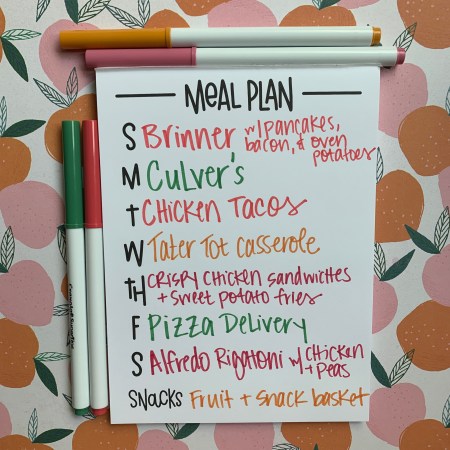 MEAL PLAN
S Brinner w/ pancakes,
bacon, & oven
potatoes
M Culver's
T Chicken Tacos
W Tater Tot Casserole
TH Crispy Chicken Sandwiches
+ Sweet potato fries
F Pizza Delivery
S Alfredo Rigatoni w/ chicken
+ Peas
SNACKS Fruit + Snack basket